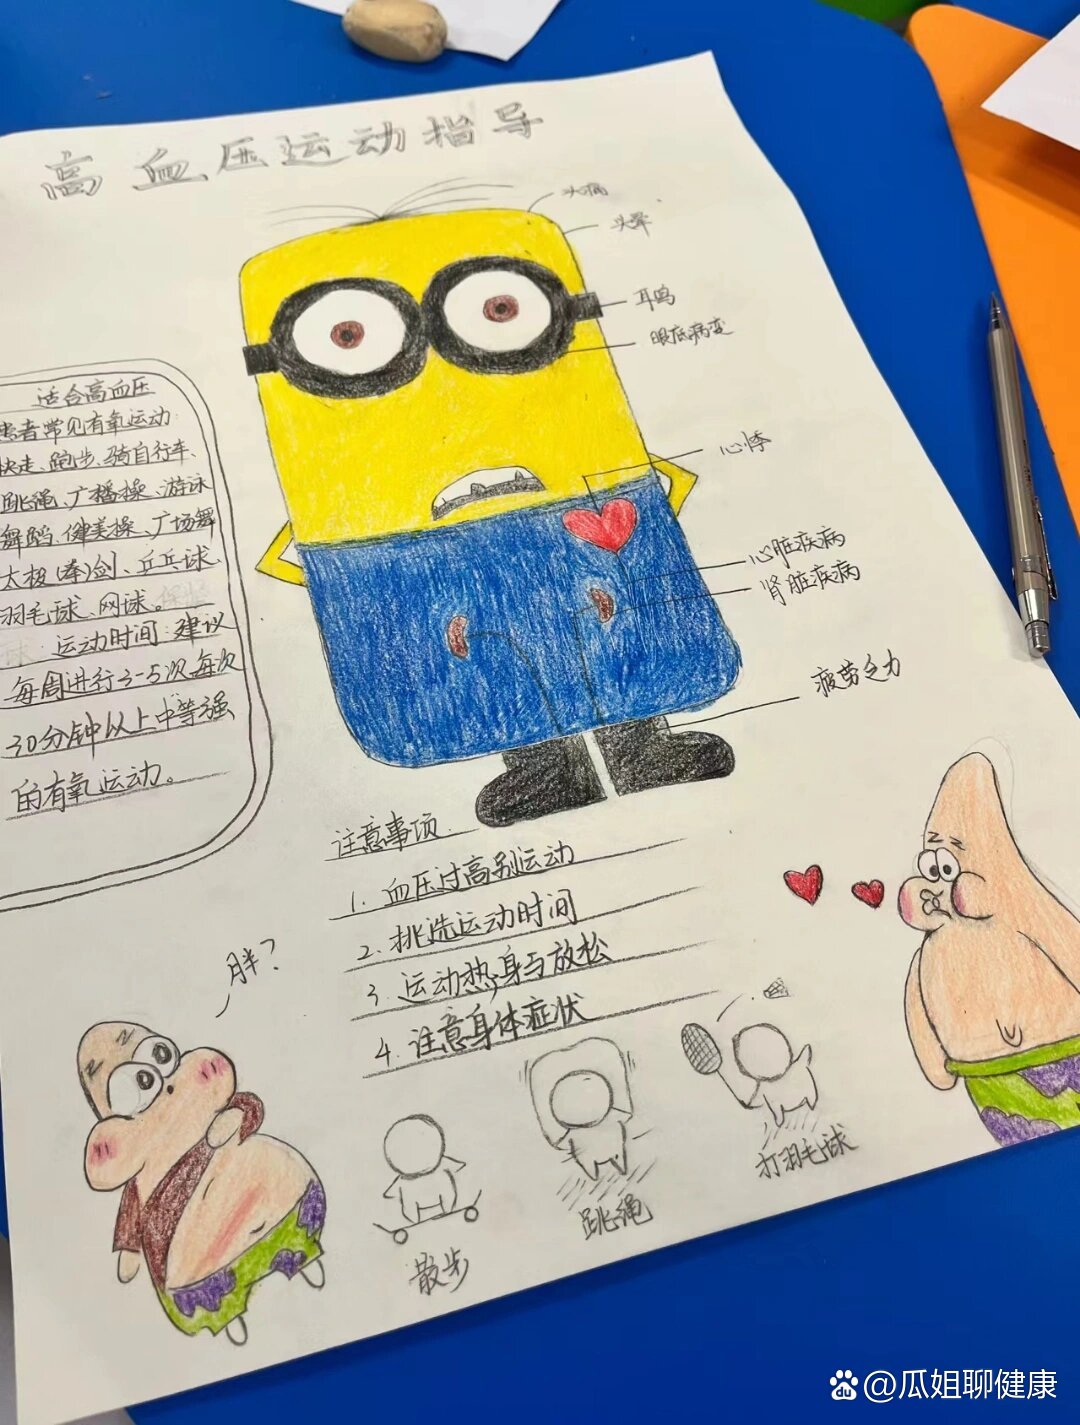 高血压运动指导
头痛
头晕
耳鸣
眼底病变
心悸
心脏疾病
肾脏疾病
疲劳乏力
适合高血压
患者常见有氧运动:
快走、跑步、骑自行车、
跳绳、广播操、游泳
舞蹈、健美操、广场舞
太极(拳)剑、乒乓球、
羽毛球、网球。
运动时间:建议
每周进行3-5次每次
30分钟以上中等强
的有氧运动。
注意事项
1. 血压过高别运动
2. 挑选运动时间
3. 运动热身与放松
4. 注意身体症状
胖?
散步
跳绳
打羽毛球
Baidu @瓜姐聊健康